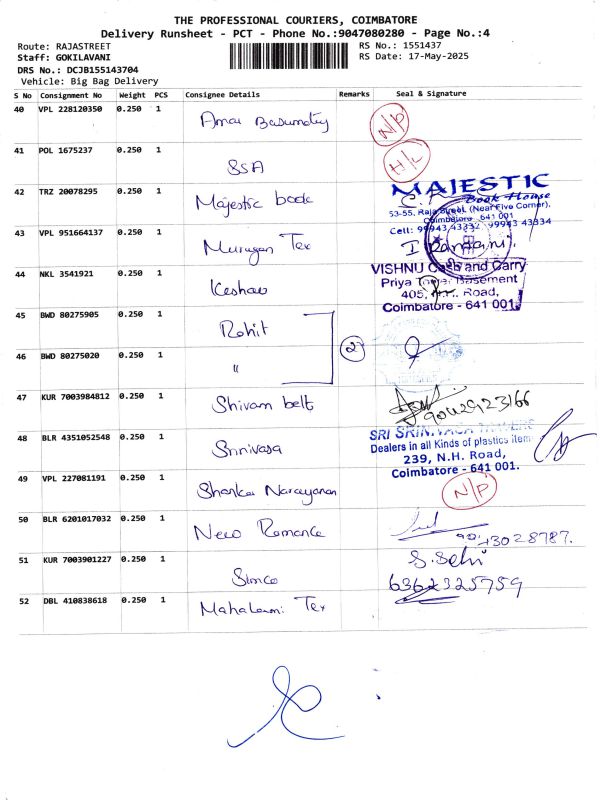 THE PROFESSIONAL COURIERS, COIMBATORE
Delivery Runsheet - PCT - Phone No.:9047080280 - Page No.:4
Route: RAJASTREET RS No.: 1551437
Staff: GOKILAVANI RS Date: 17-May-2025
DRS No.: DCJB155143704
Vehicle: Big Bag Delivery
S No Consignment No Weight PCS Consignee Details Remarks Seal & Signature
40 VPL 228120350 0.250 1 N/P
41 POL 1675237 0.250 1 SSA H/L
42 TRZ 20078295 0.250 1 Majestic book
MAJESTIC
Book House
53-55, Raja Street, (Near Five Corner),
Coimbatore - 641 001
Cell: 99943 43332, 99943 43334
43 VPL 951664137 0.250 1 Murugan Tex
44 NKL 3541921 0.250 1 Keshav
VISHNU Cash and Carry
Priya Tower Basement
405, Road,
Coimbatore - 641 001.
45 BWD 80275905 0.250 1 Rohit
46 BWD 80275020 0.250 1 " 2
47 KUR 7003984812 0.250 1 Shivam belt 9042923166
48 BLR 4351052548 0.250 1 Srinivasa
SRI
Dealers in all Kinds of plastics item
239, N.H. Road,
Coimbatore - 641 001.
49 VPL 227081191 0.250 1 Shankar Narayanan N/P
50 BLR 6201017032 0.250 1 New Romance 9043028787.
51 KUR 7003901227 0.250 1 Simco S. Selvi
6362325759
52 DBL 410838618 0.250 1 Mahalaxmi Tex